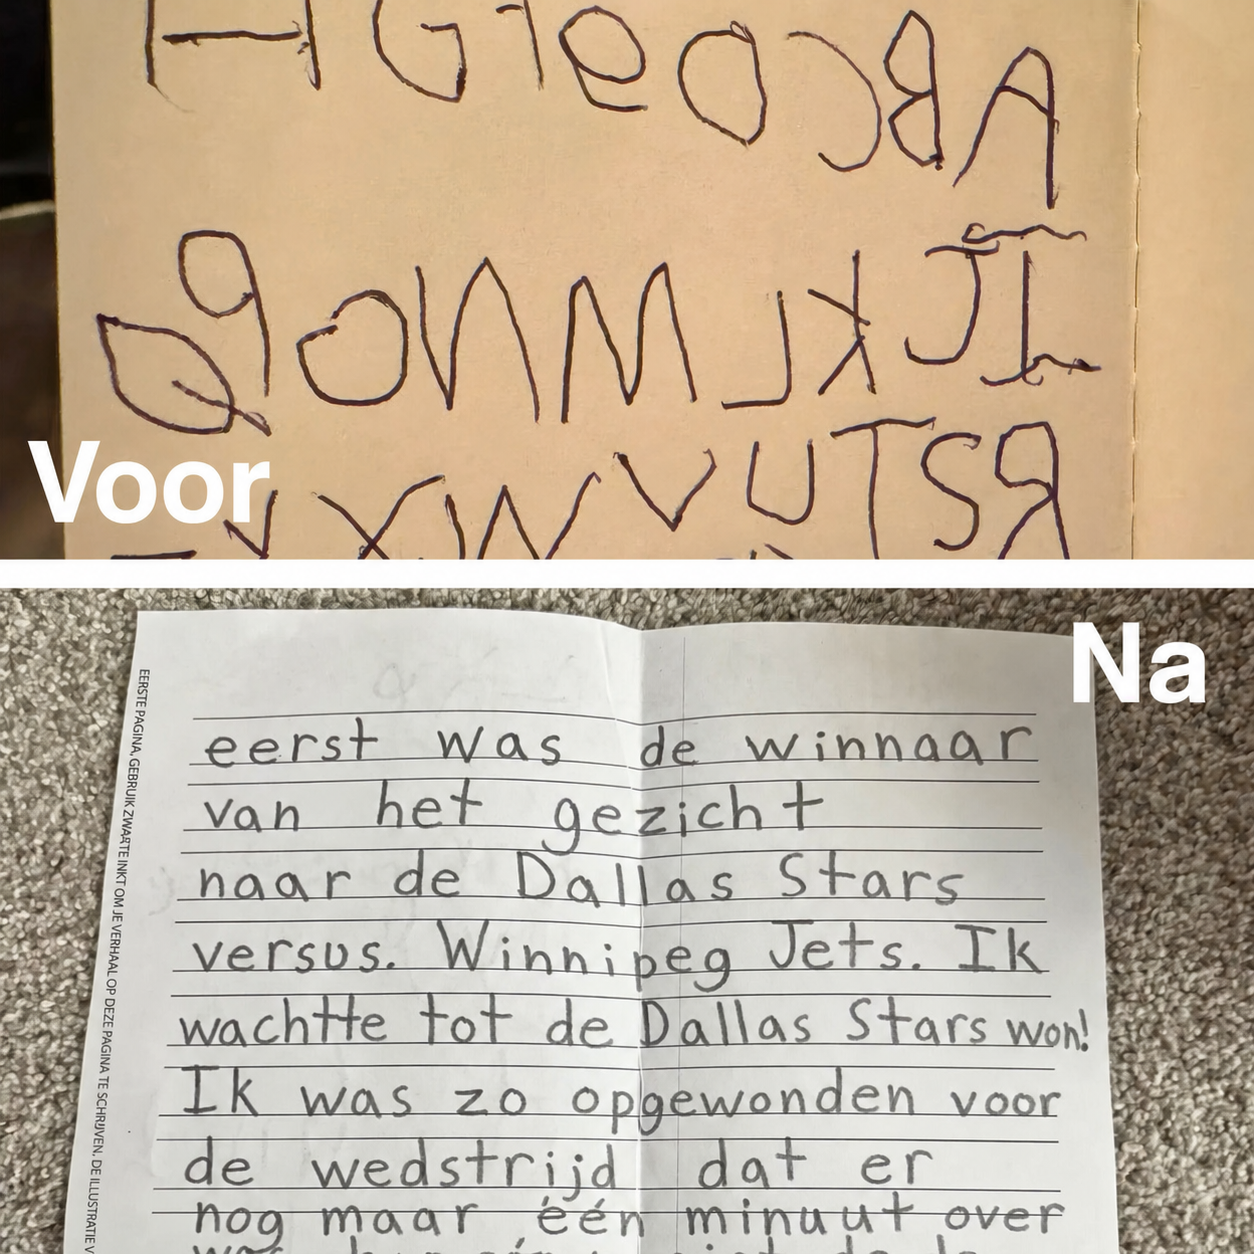 A B C D e F G H
I J K L M N O P Q
R S T U V W X Y
Voor
Na
eerst was de winnaar
van het gezicht
naar de Dallas Stars
versus. Winnipeg Jets. Ik
wachtte tot de Dallas Stars won!
Ik was zo opgewonden voor
de wedstrijd dat er
nog maar één minuut over
EERSTE PAGINA, GEBRUIK ZWARTE INKT OM JE VERHAAL OP DEZE PAGINA TE SCHRIJVEN. DE ILLUSTRATIE